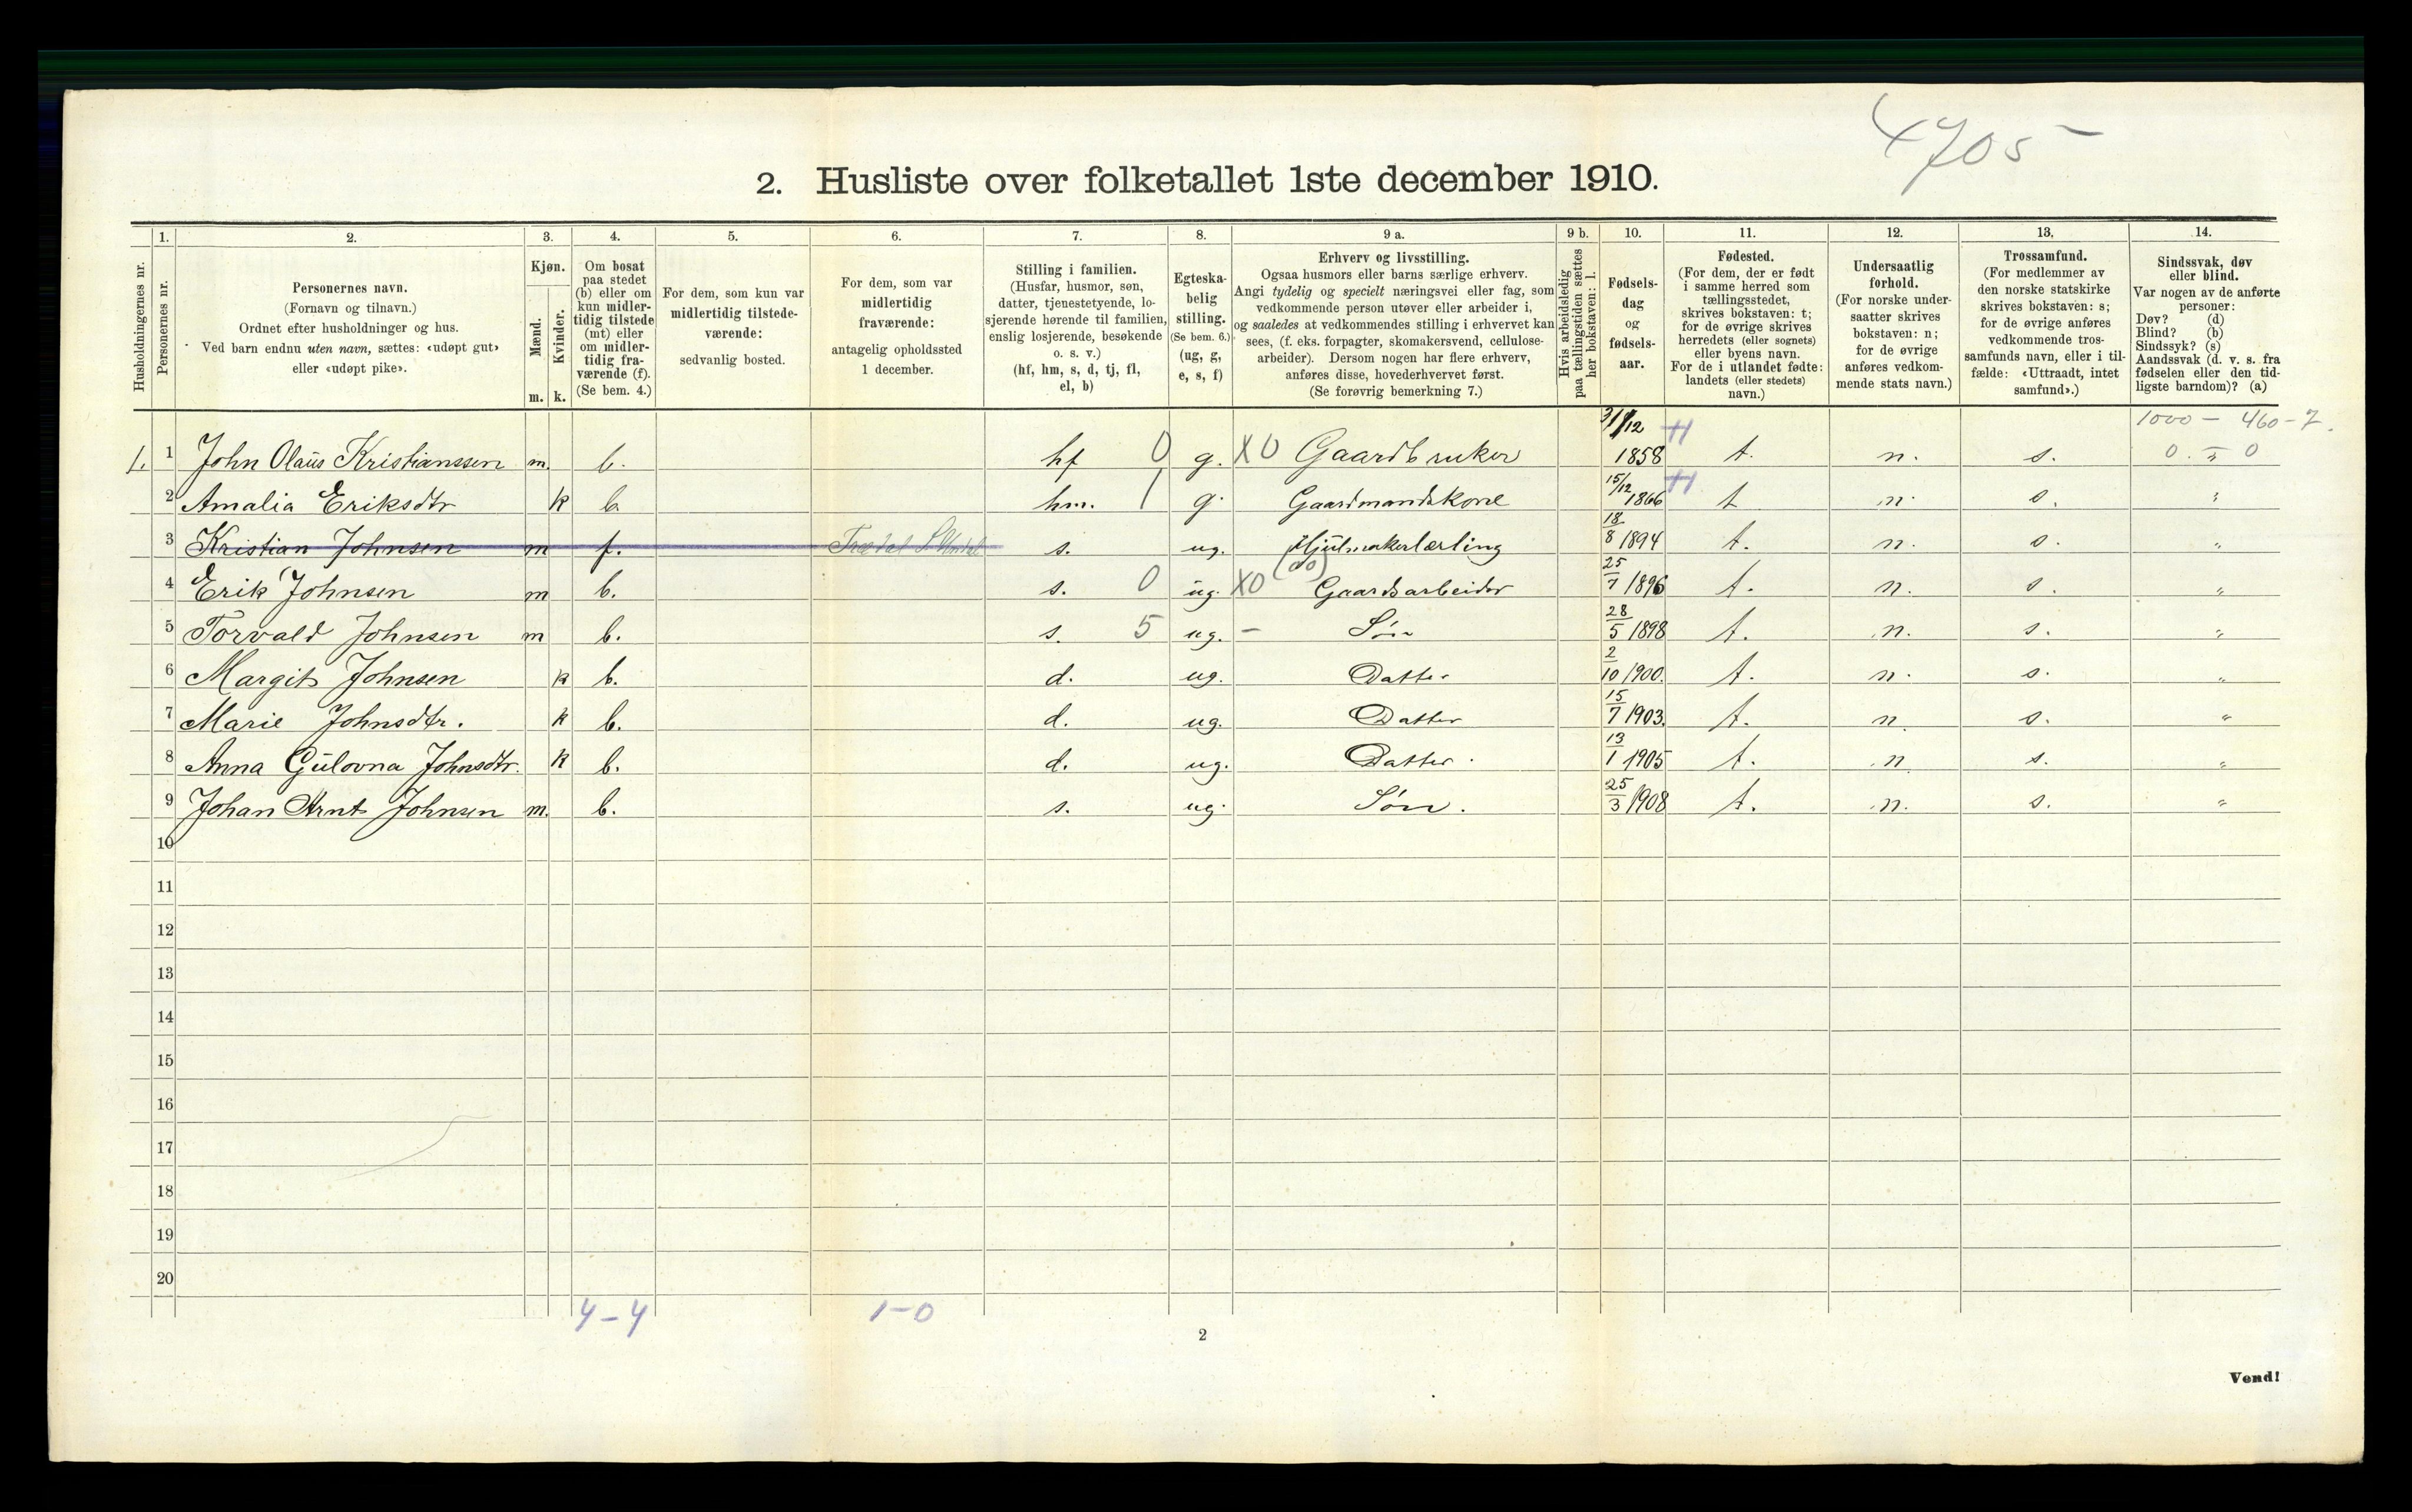 4705
2. Husliste over folketallet 1ste december 1910.
Husholdningernes nr.
1. Personernes nr.
2. Personernes navn.
(Fornavn og tilnavn.)
Ordnet efter husholdninger og hus.
Ved barn endnu uten navn, sættes: «udøpt gut»
eller «udøpt pike».
3. Kjøn.
Mænd. Kvinder.
m. k.
4. Om bosat
paa stedet
(b) eller om
kun midler-
tidig tilstede
(mt) eller
om midler-
tidig fra-
værende (f).
(Se bem. 4.)
5. For dem, som kun var
midlertidig tilstede-
værende:
sedvanlig bosted.
6. For dem, som var
midlertidig
fraværende:
antagelig opholdssted
1 december.
7. Stilling i familien.
(Husfar, husmor, søn,
datter, tjenestetyende, lo-
sjerende hørende til familien,
enslig losjerende, besøkende
o. s. v.)
(hf, hm, s, d, tj, fl,
el, b)
8. Egteska-
belig
stilling.
(Se bem. 6.)
(ug, g,
e, s, f)
9 a. Erhverv og livsstilling.
Ogsaa husmors eller barns særlige erhverv.
Angi tydelig og specielt næringsvei eller fag, som
vedkommende person utøver eller arbeider i,
og saaledes at vedkommendes stilling i erhvervet kan
sees, (f. eks. forpagter, skomakersvend, cellulose-
arbeider). Dersom nogen har flere erhverv,
anføres disse, hovederhvervet først.
(Se forøvrig bemerkning 7.)
9 b. Hvis arbeidsledig
paa tællingstiden sættes
her bokstaven: l.
10. Fødsels-
dag
og
fødsels-
aar.
11. Fødested.
(For dem, der er født
i samme herred som
tællingsstedet,
skrives bokstaven: t;
for de øvrige skrives
herredets (eller sognets)
eller byens navn.
For de i utlandet fødte:
landets (eller stedets)
navn.)
12. Undersaatlig
forhold.
(For norske under-
saatter skrives
bokstaven: n;
for de øvrige
anføres vedkom-
mende stats navn.)
13. Trossamfund.
(For medlemmer av
den norske statskirke
skrives bokstaven: s;
for de øvrige anføres
vedkommende tros-
samfunds navn, eller i til-
fælde: «Uttraadt, intet
samfund».)
14. Sindssvak, døv
eller blind.
Var nogen av de anførte
personer:
Døv? (d)
Blind? (b)
Sindssyk? (s)
Aandssvak (d. v. s. fra
fødselen eller den tid-
ligste barndom)? (a)
1000 - 460 - 7.
1. 1 John Olaüs Kristianssen m. b. hf 0 g. X0 Gaardbruker 31/12 1858 t. n. s. 0. „ 0
2 Amalia Eriksdtr k b. hm. 1 g. Gaardmandskone 15/12 1866 t n. s. „
3 Kristian Johnsen m f. s. ug. Hjülmakerlærling 18/8 1894 t. n. s. „
(do)
4 Erik Johnsen m b. s. 0 üg. X0 Gaardsarbeider 25/7 1896 t. n. s. „
5 Torvald Johnsen m b. s. 5 ug. - Søn 28/5 1898 t. n. s. „
6 Margit Johnsen k b. d. ug. Datter 2/10 1900. t. n. s. „
7 Marie Johnsdtr. k b. d. ug. Datter 15/7 1903. t. n s. „
8 Anna Gülovna Johnsdtr. k b. d. ug. Datter. 13/1 1905 t. n s. „
9 Johan Arnt Johnsen m. b. s. ug. Søn. 25/3 1908 t. n. s. „
10
11
12
13
14
15
16
17
18
19
20
4-4 1-0
2
Vend!